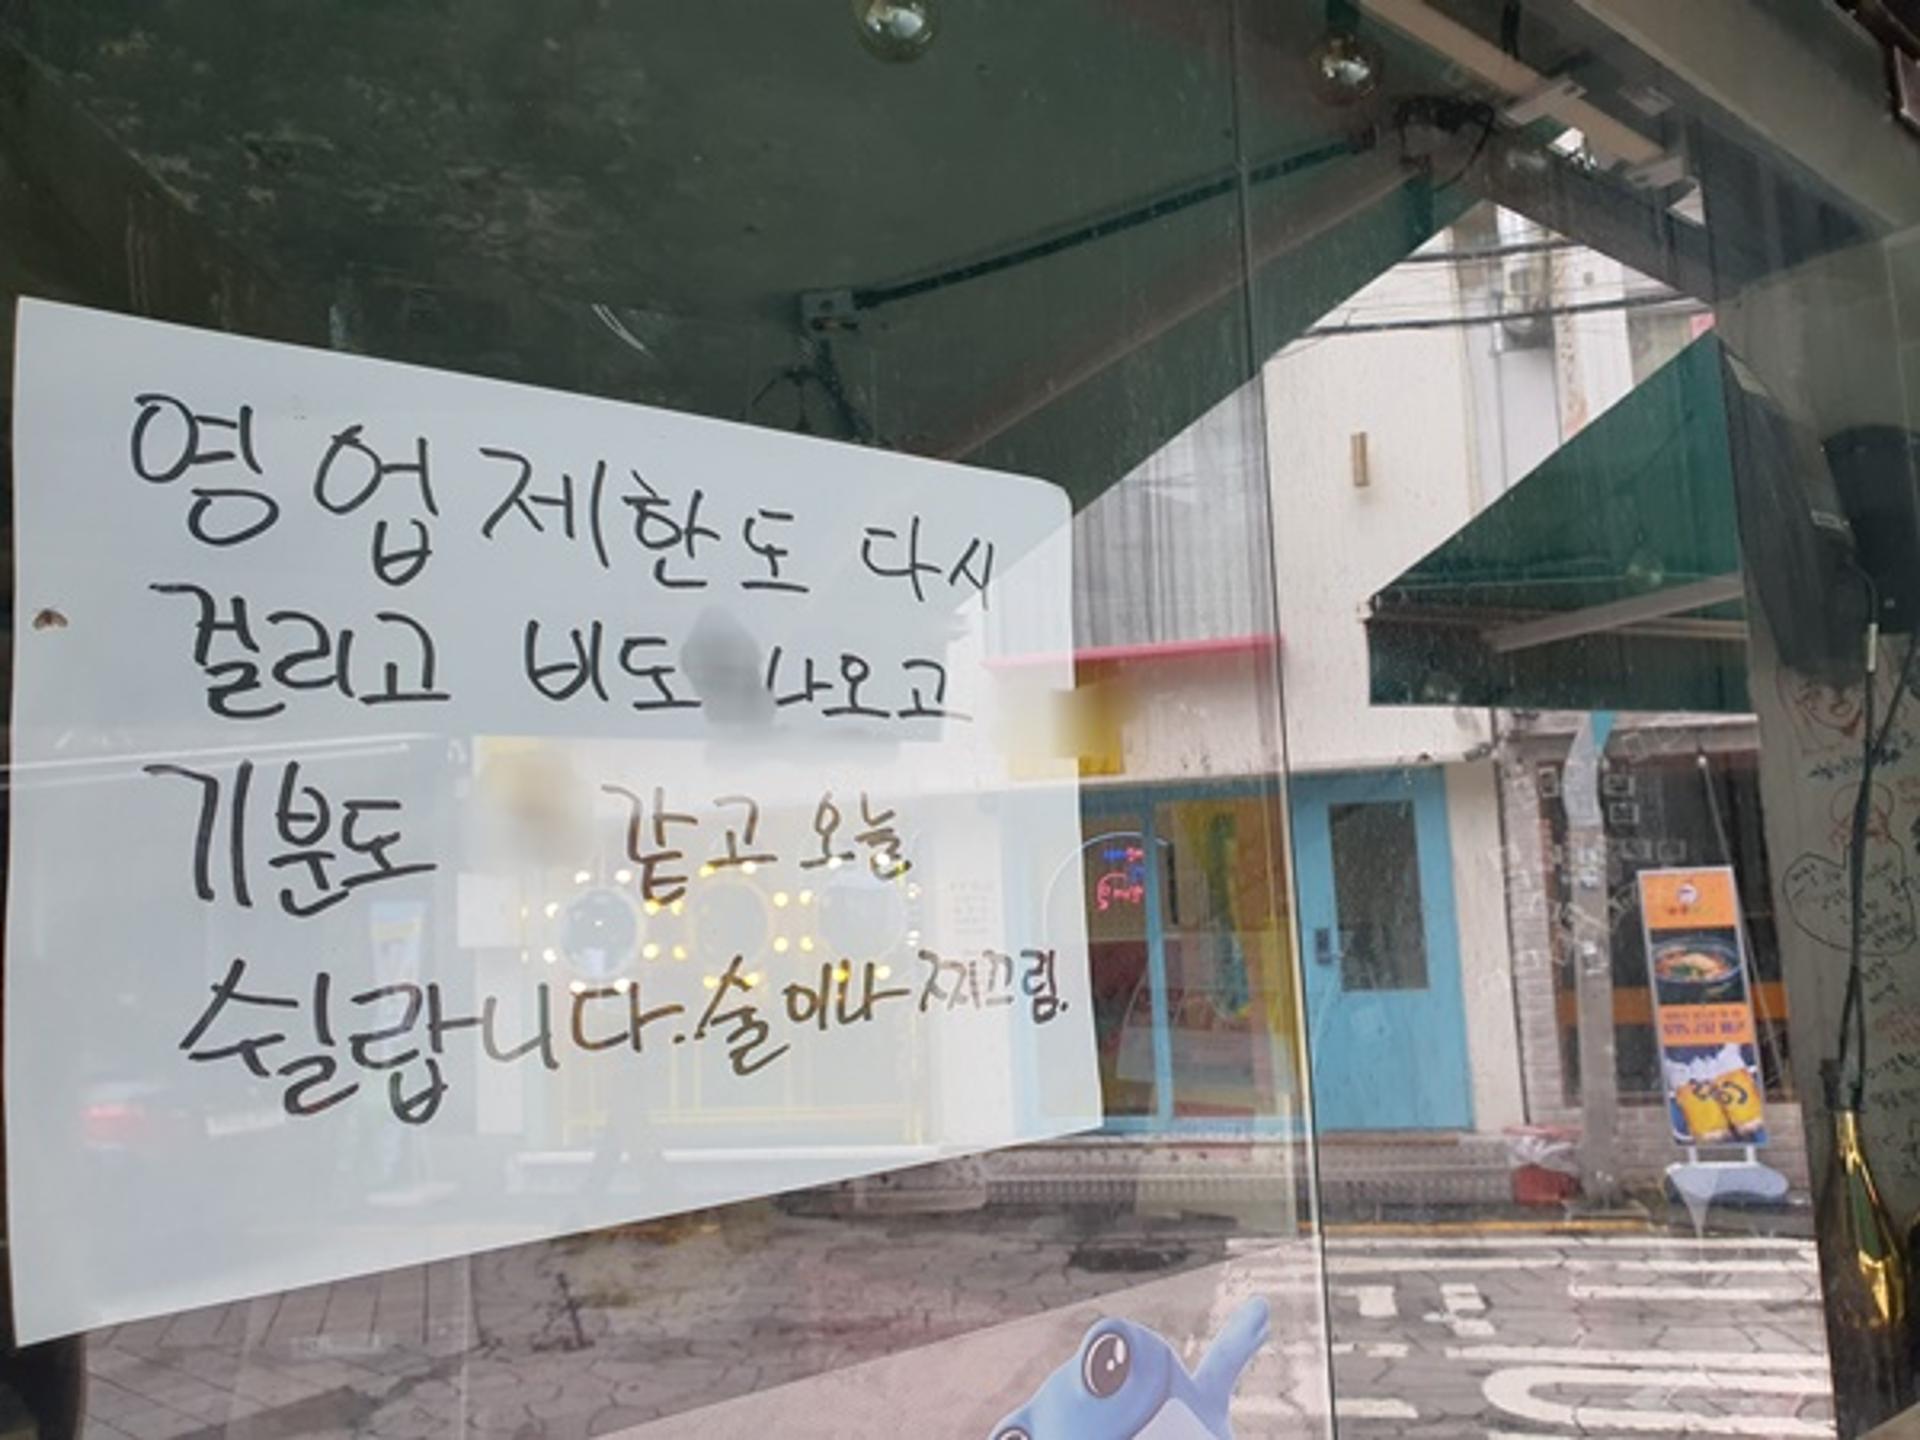 영업제한도 다시
걸리고 비도 나오고
기분도 같고 오늘
쉴랍니다. 술이나 쳐끄림.